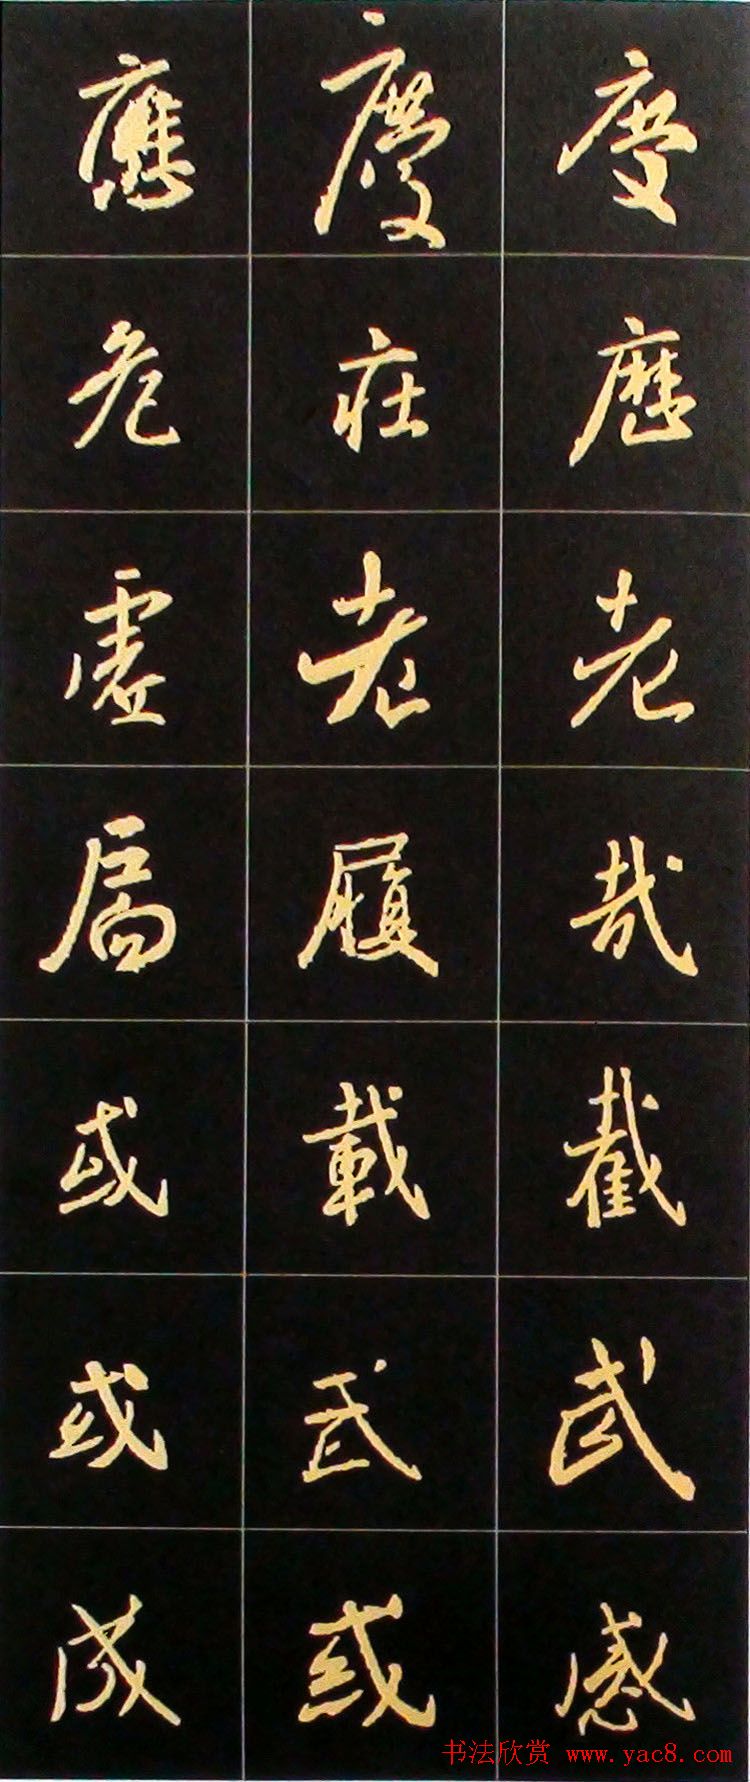 度歷老哉截武感
慶莊老履載武惑
應危虛扃或或成
书法欣赏 www.yac8.com